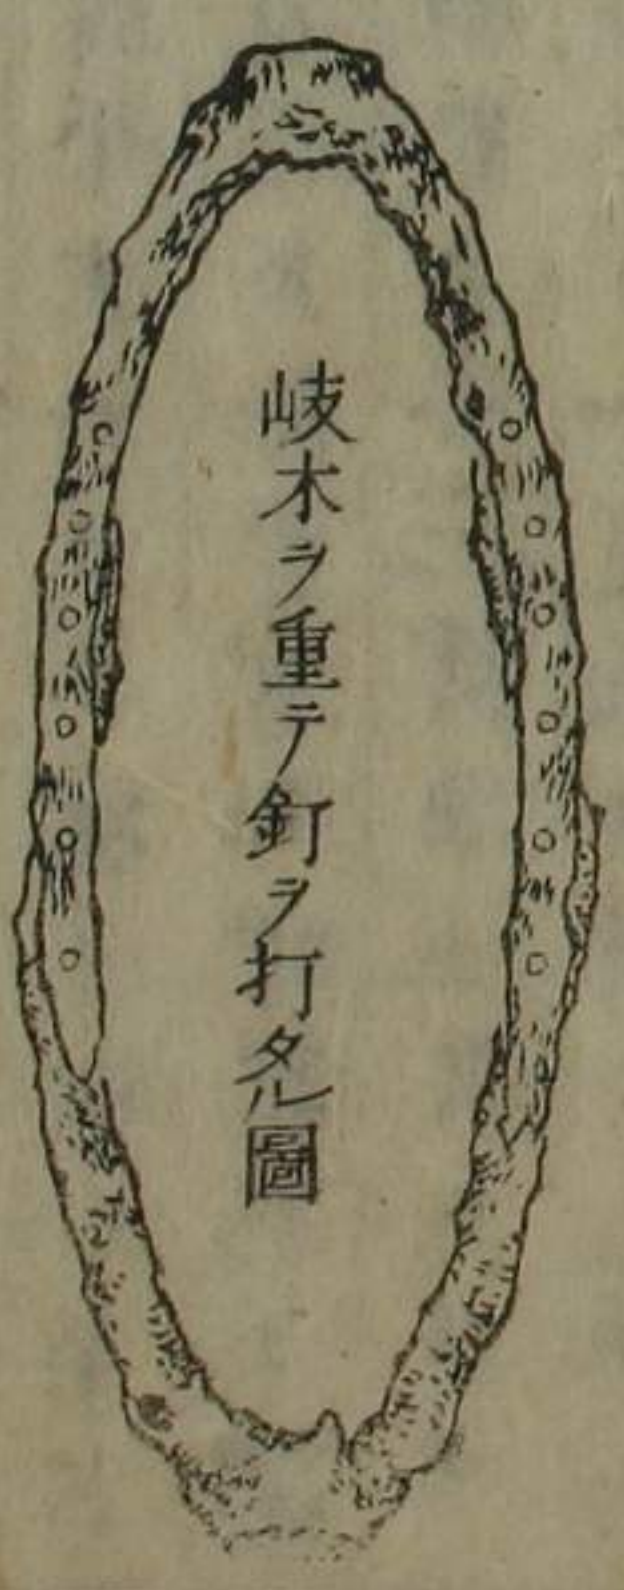 岐木ヲ重テ釘ヲ打タル圖